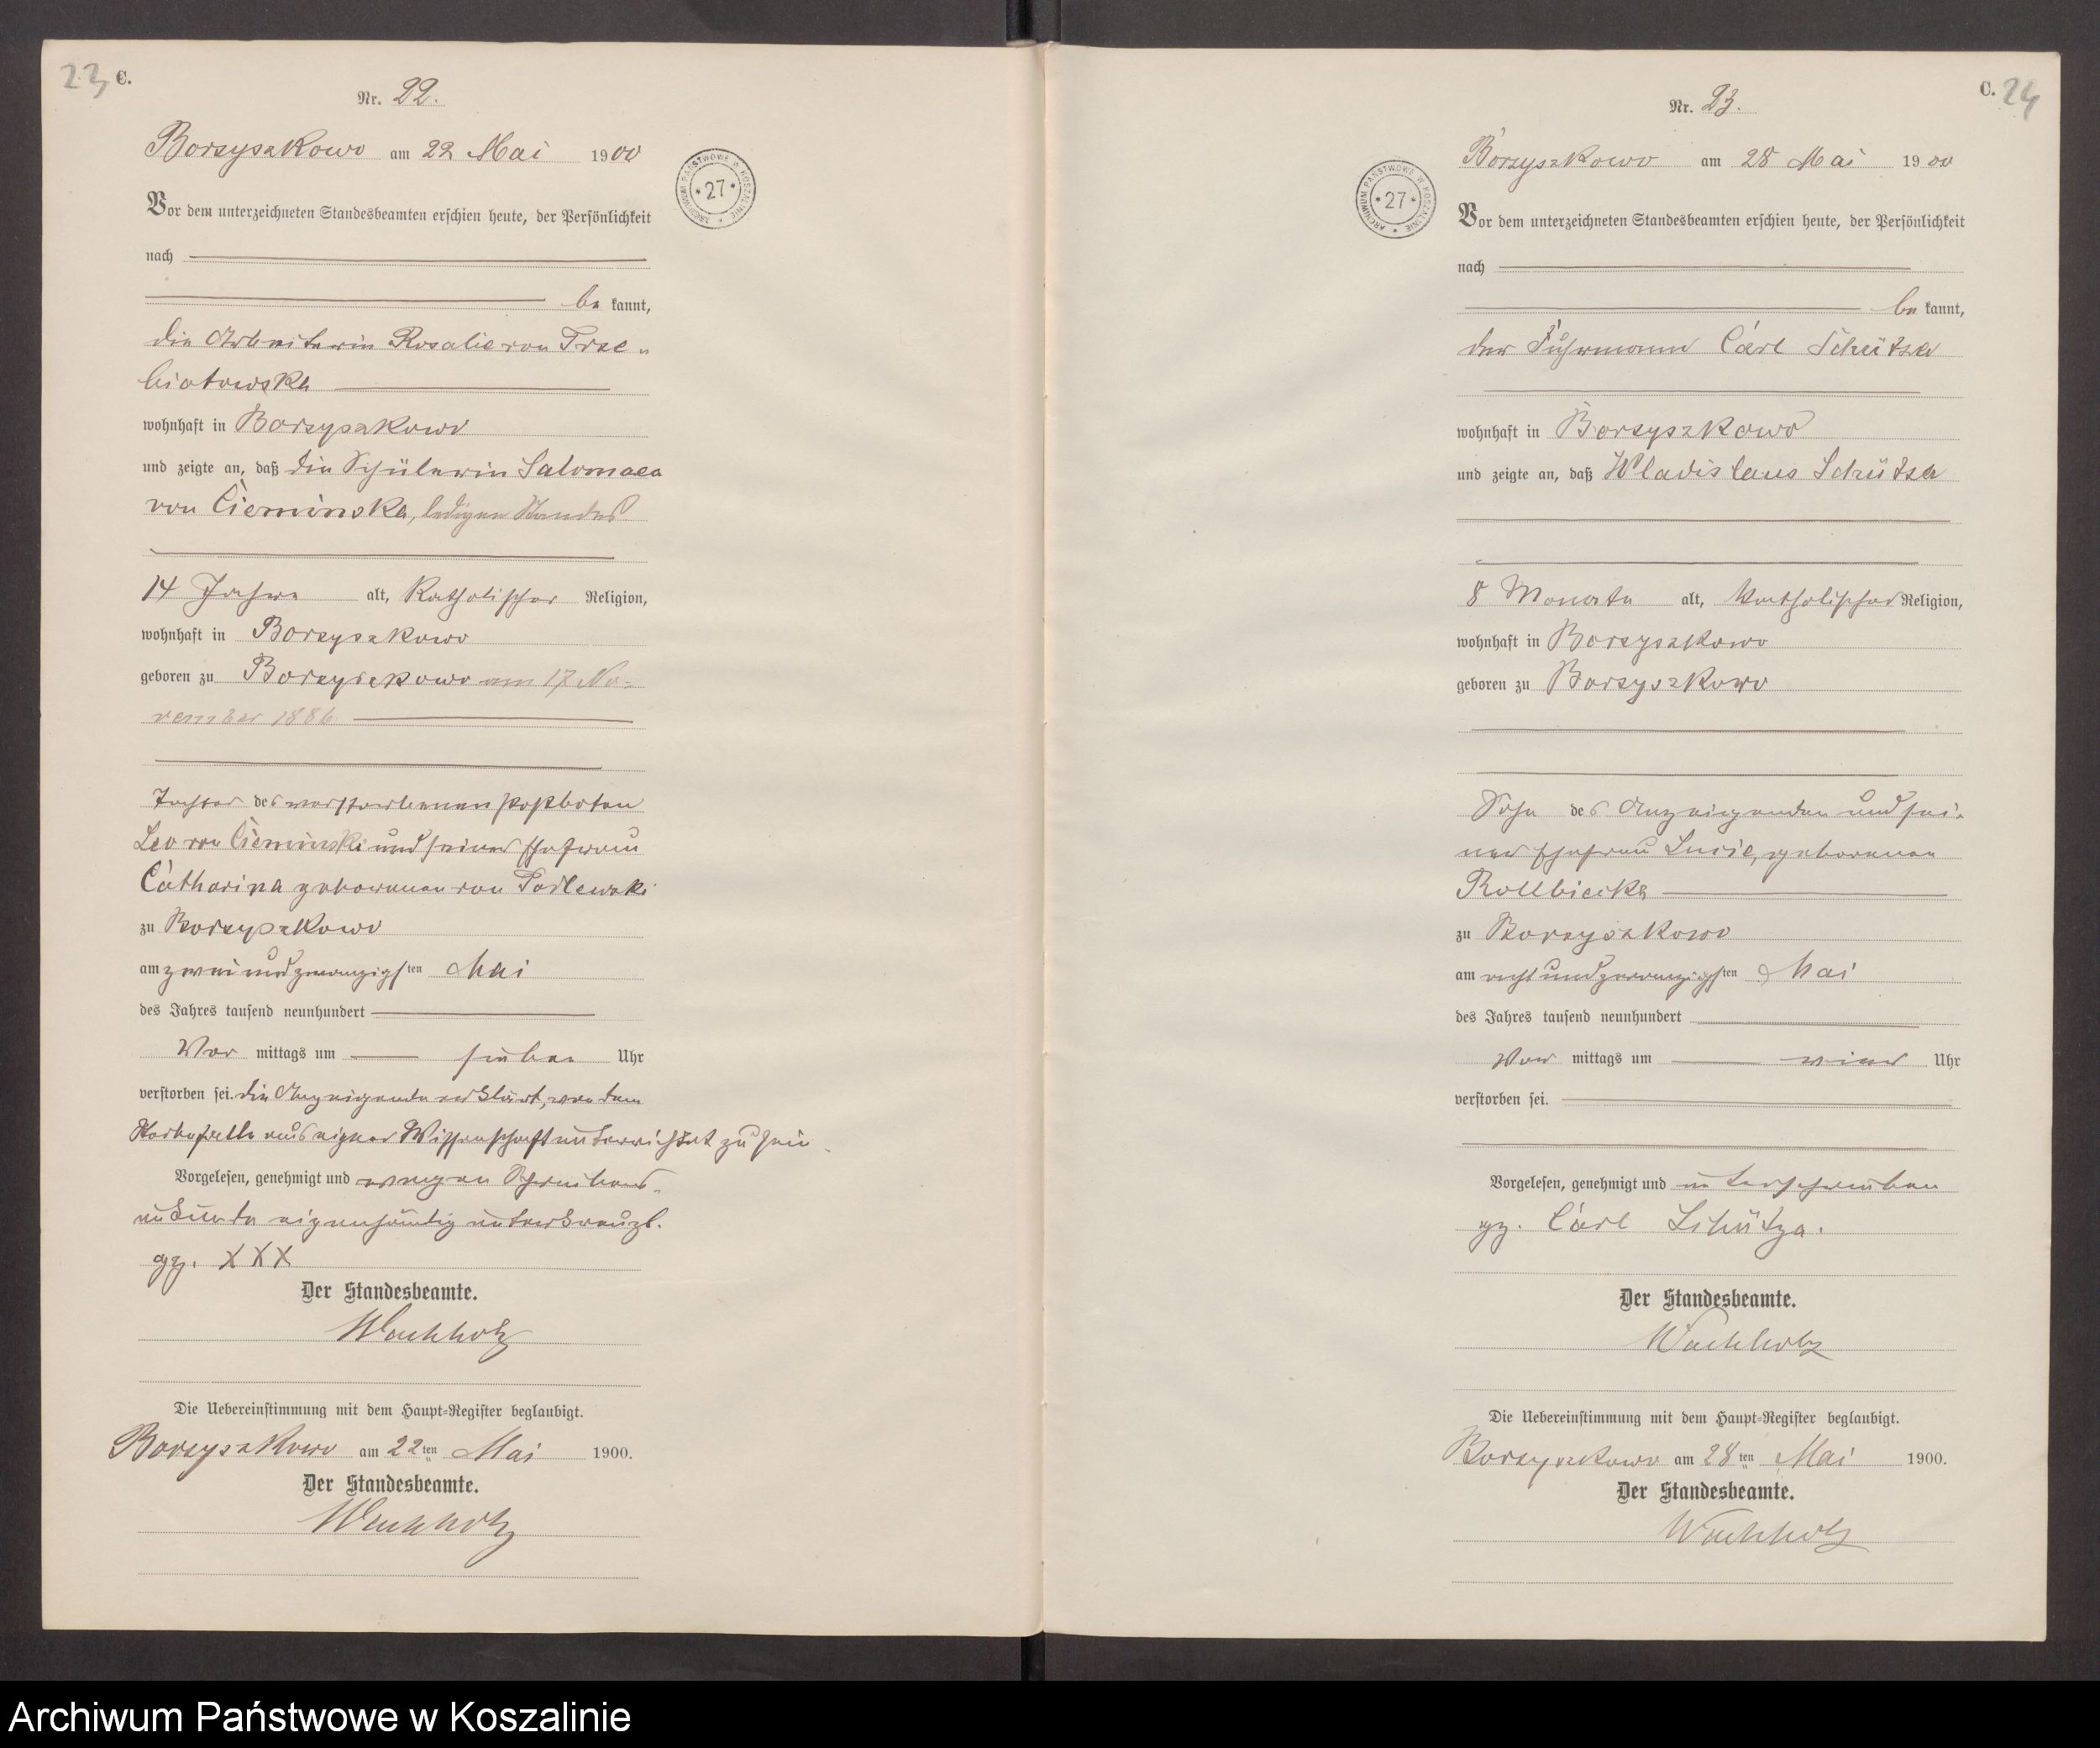 23 C.
Nr. 22.
Borzyszkowo am 22 Mai 1900
Vor dem unterzeichneten Standesbeamten erschien heute, der Persönlichkeit
nach
be kannt,
die Arbeiterin Rosalie von Trze-
biatowska
wohnhaft in Borzyszkowo
und zeigte an, daß die Schülerin Salomaea
von Cieminska, ledigen Standes
14 Jahre alt, katholischer Religion,
wohnhaft in Borzyszkowo
geboren zu Borzyszkowo am 17 No-
vember 1886
Tochter des verstorbenen Postboten
Leo von Cieminski und seiner Ehefrau
Catharina geborenen von
zu Borzyszkowo
am zweiundzwanzigsten Mai
des Jahres tausend neunhundert
Vor mittags um sieben Uhr
verstorben sei. die Anzeigende erklärt, von dem
Sterbefalle aus eigner Wissenschaft unterrichtet zu sein
Vorgelesen, genehmigt und wegen Schreibens-
unkunde eigenhändig unterkreuzt.
gz. XXX
Der Standesbeamte.
Wachholz
Die Uebereinstimmung mit dem Haupt-Register beglaubigt.
Borzyszkowo am 22 ten Mai 1900.
Der Standesbeamte.
Wachholz
ARCHIWUM PAŃSTWOWE W KOSZALINIE * 27 *
C. 24
Nr. 23.
Borzyszkowo am 28 Mai 1900
Vor dem unterzeichneten Standesbeamten erschien heute, der Persönlichkeit
nach
be kannt,
der Fuhrmann Carl Schütza
wohnhaft in Borzyszkowo
und zeigte an, daß Wladislaus Schütza
8 Monate alt, katholischer Religion,
wohnhaft in Borzyszkowo
geboren zu Borzyszkowo
Sohn des Anzeigenden und sei-
ner Ehefrau Lucie, geborenen
Rollbiecka
zu Borzyszkowo
am achtundzwanzigsten Mai
des Jahres tausend neunhundert
Vor mittags um vier Uhr
verstorben sei.
Vorgelesen, genehmigt und unterschrieben
gz. Carl Schütza.
Der Standesbeamte.
Wachholz
Die Uebereinstimmung mit dem Haupt-Register beglaubigt.
Borzyszkowo am 28 ten Mai 1900.
Der Standesbeamte.
Wachholz
ARCHIWUM PAŃSTWOWE W KOSZALINIE * 27 *
Archiwum Państwowe w Koszalinie